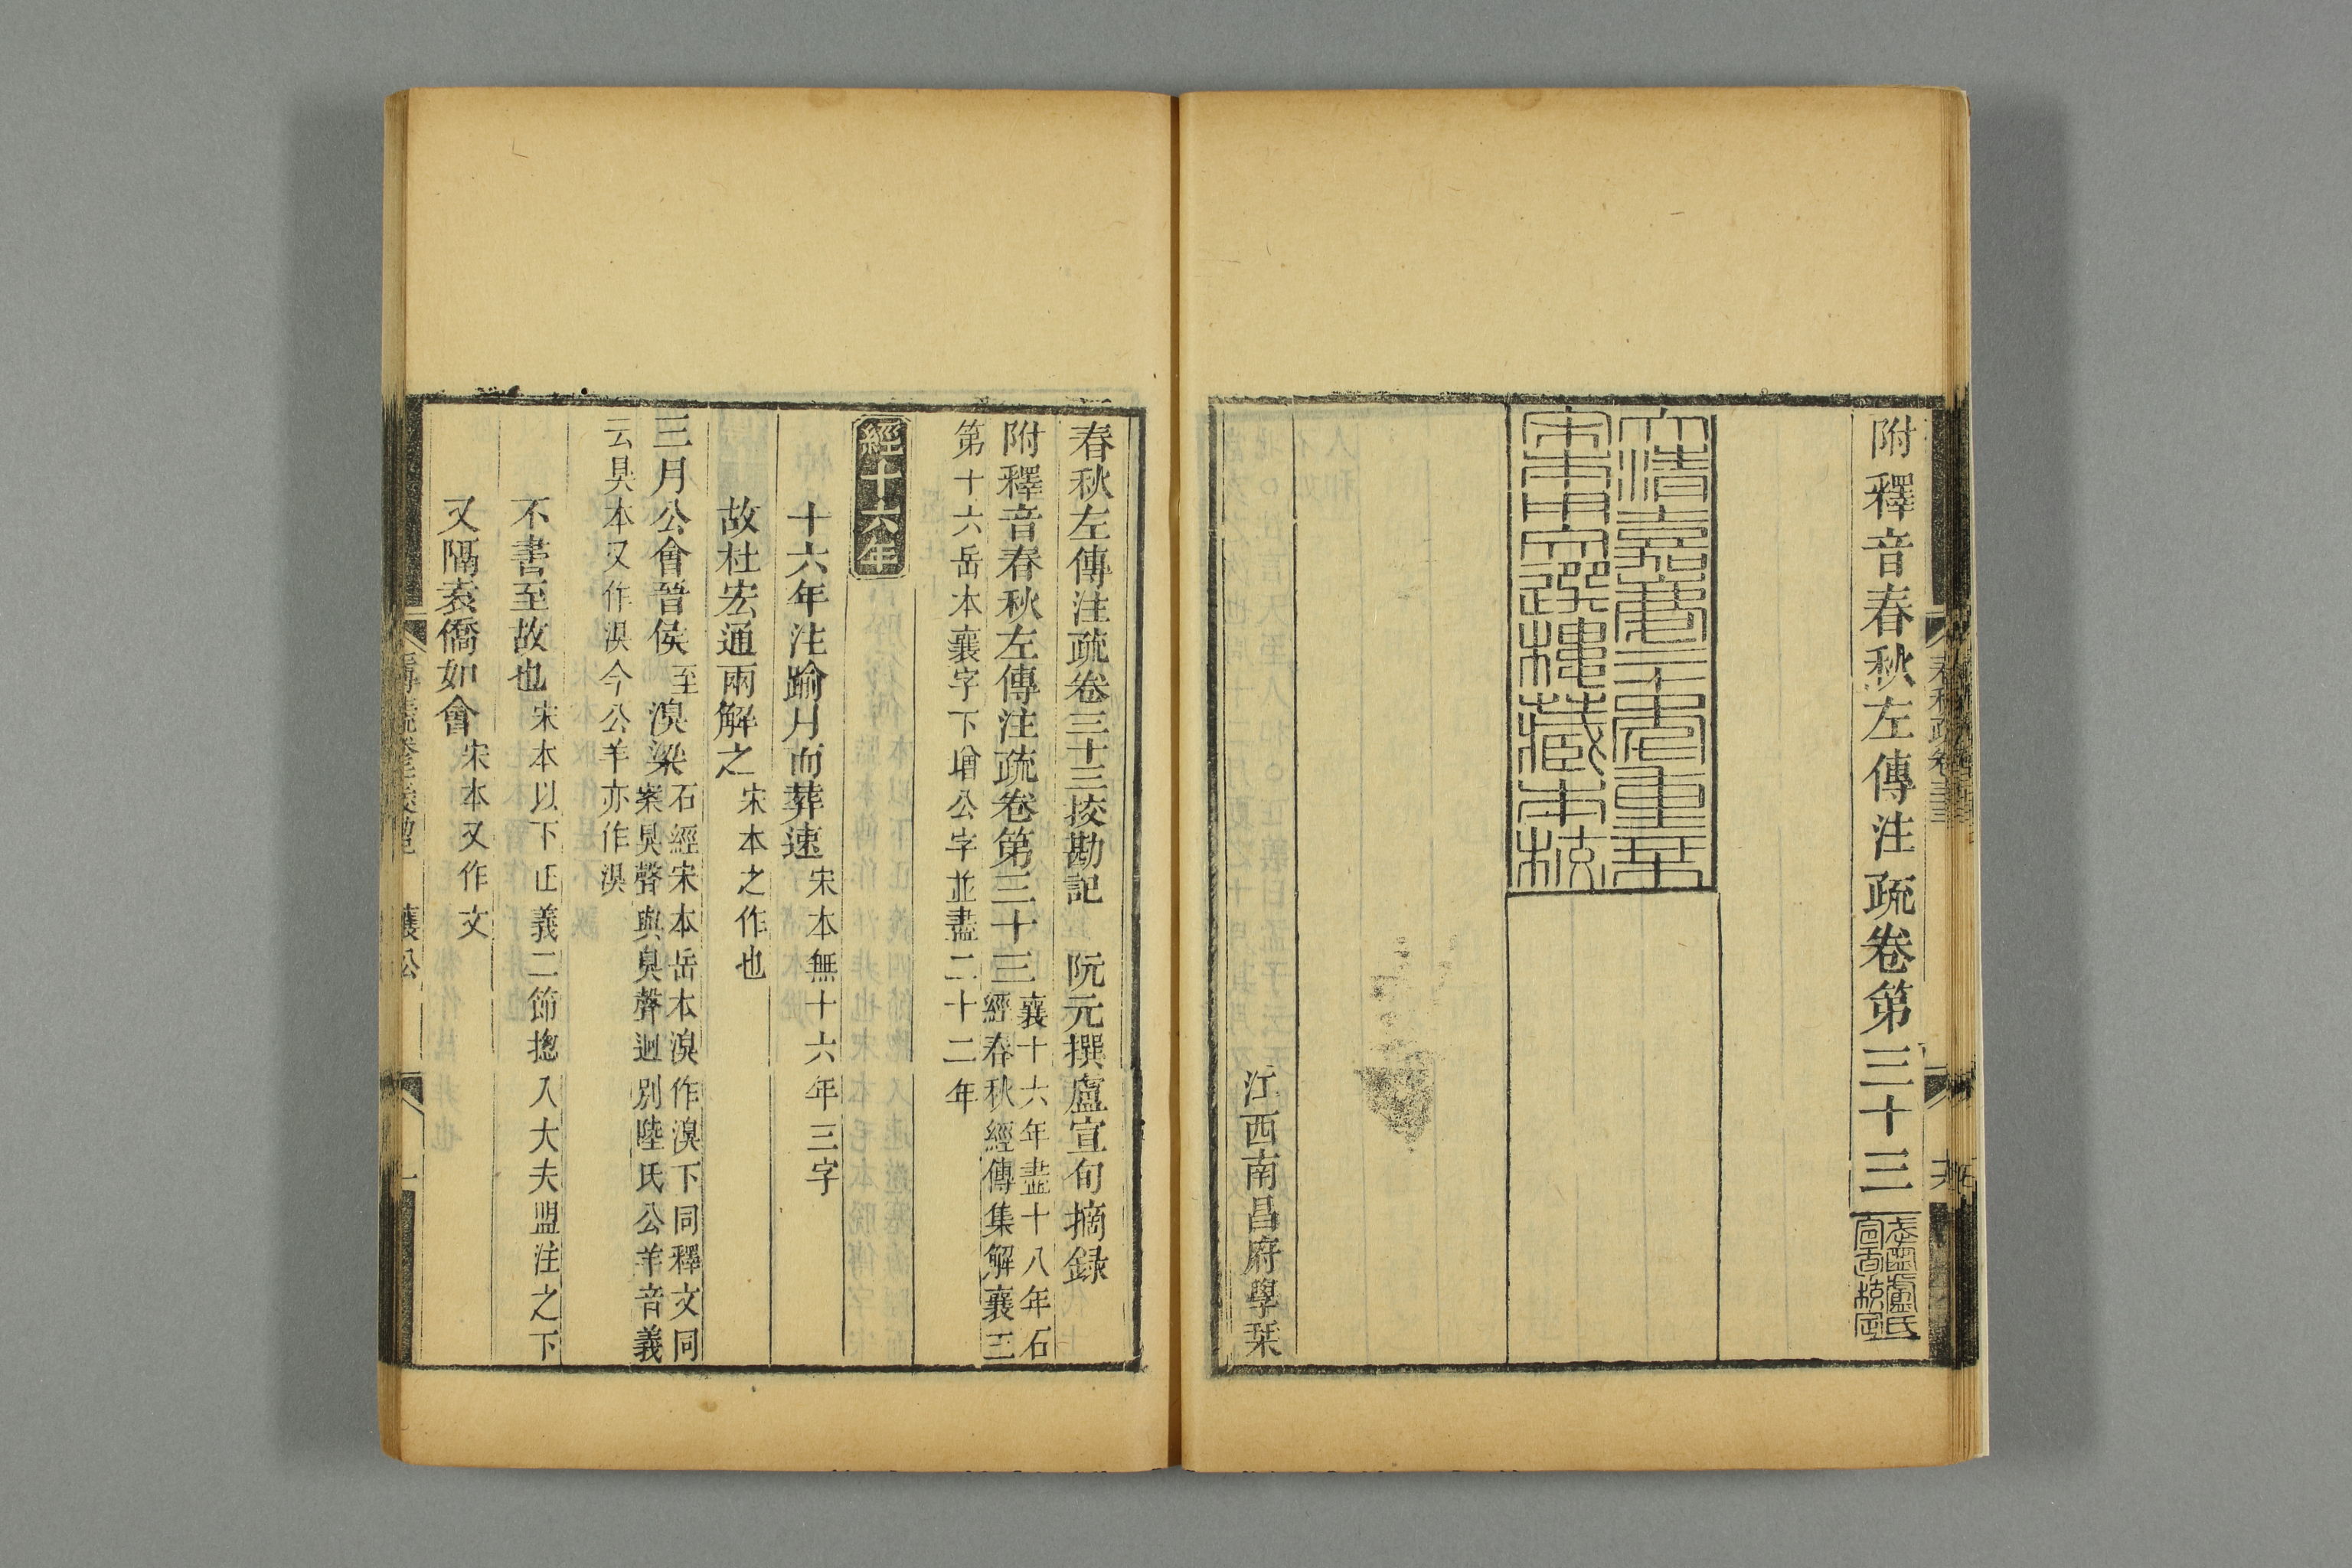 附釋音春秋左傳注疏卷第三十三
大清嘉慶二十年重栞
宋本文選樓藏本校
江西南昌府學栞
春秋左傳注疏卷三十三挍勘記 阮元撰盧宣旬摘録
附釋音春秋左傳注疏卷第三十三 襄十六年盡十八年石
經春秋經傳集解襄三
第十六岳本襄字下增公字並盡二十二年
經十六年
十六年注踰月而葬速 宋本無十六年三字
故杜宏通兩解之 宋本之作也
三月公會晉侯至湨梁 石經宋本岳本湨作湨下同釋文同
案狊聲與臭聲迥別陸氏公羊音義
云狊本又作湨今公羊亦作湨
不書至故也 宋本以下正義二節揔入大夫盟注之下
又隔袁僑如會 宋本又作文